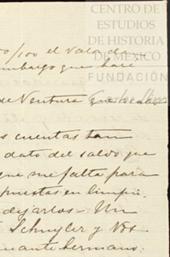 CENTRO DE
ESTUDIOS
DE HISTORIA
DE MÉXICO
FUNDACIÓN
o/oo el valor de
embargo que hare
de Ventura
s cuentas tan
dato del saldo que
que me falta para
puestas en limpio
dejarlos — Un
Schuyler y Vos
amante hermano: